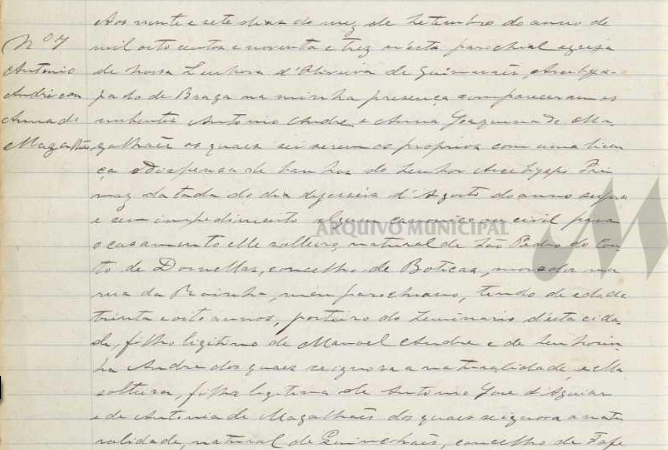 Nº 07
Antonio
André com
Anna de
Magalhães
Aos vinte e sete dias do mez de Setembro do anno de
mil oito centos e noventa e trez nesta parochial egreja
de Nossa Senhora d'Oliveira de Guimarães, Arcebis-
pado de Braga na minha presença compareceram os
nubentes Antonio André e Anna Joaquina de Ma-
galhães os quaes sei serem os proprios com uma licen-
ça e dispensa de banhos do Senhor Arcebispo Pri-
maz datada do dia d'Agosto do anno supra
e sem impedimento algum canonico ou civil para
o casamento elle solteiro, natural de São Pedro do Cou-
to de Dornellas, concelho de Boticas, morador na
rua da Rainha, meu parochiano, tendo de edade
trinta e oito annos, porteiro do Seminario d'esta cida-
de, filho legitimo de Manoel André e de Senhori-
nha André dos quaes se ignora a naturalidade, e ella
solteira, filha legitima de Antonio José d'Aguiar
e de Antonia de Magalhães dos quaes se ignora a natu-
ralidade, natural de Quinchães, concelho de Fafe
ARQUIVO MUNICIPAL